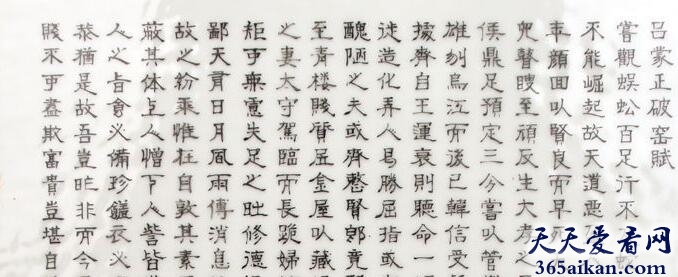 呂蒙正破窑賦
嘗觀蜈蚣百足行不
不能崛起故天道惡
顏回以賢良而早死
兇瞽瞍至頑反生大孝之
侯鼎足預定三分嘗以管
雄刎烏江而後已韓信受
據齊自王運衰則聽命一
徒造化弄人曷勝屈指或
醜陋之夫或齊憨賢郎竟
至青楼賤賓五金屋以藏
之妻太守駕臨而長跪婦
矩乎無憲失足之吐修德
鄙天有日月風雨傳消息
故之紛乘惟在自敦其素
蔽其体上人憎下人訾皆
人之旨食必備珍饈衣必
恭猶是故吾豈昨非而今
賤不可盡欺富貴豈堪自
天天爱看网
天天ikan.com